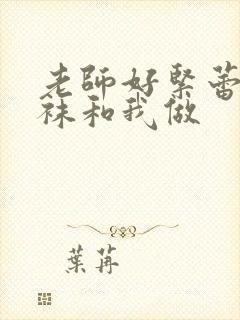 老師好緊蕾
袜和我做
葉苒